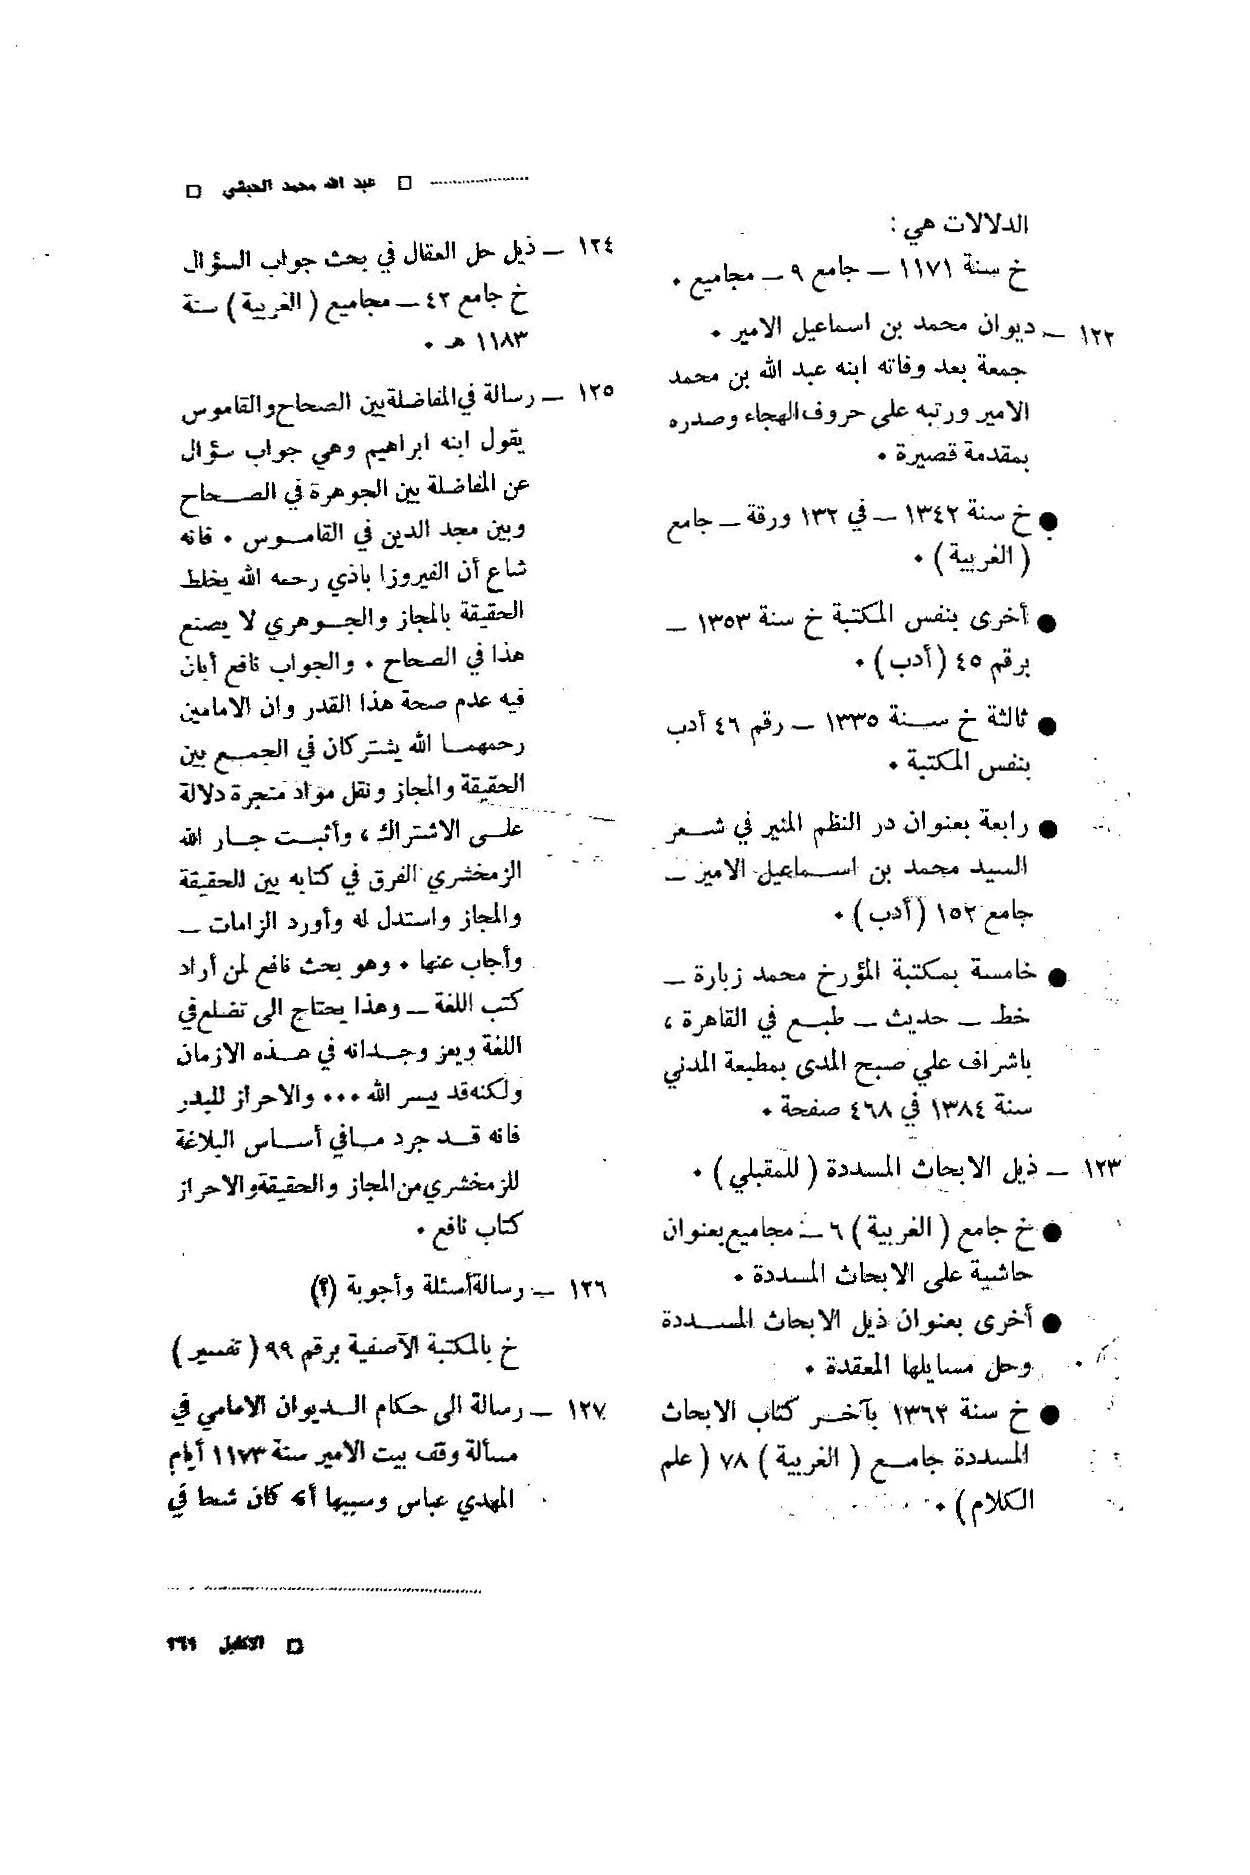 □ عبد الله محمد الحبشي □
الدلالات هي :
خ سنة ١١٧١ – جامع ٩ – مجاميع .
١٢٢ – ديوان محمد بن اسماعيل الامير .
جمعة بعد وفاته ابنه عبد الله بن محمد
الامير ورتبه على حروف الهجاء وصدره
بمقدمة قصيرة .
● خ سنة ١٣٤٢ – في ١٣٢ ورقة – جامع
( الغربية ) .
● أخرى بنفس المكتبة خ سنة ١٣٥٣ –
برقم ٤٥ ( أدب ) .
● ثالثة خ سنة ١٣٣٥ – رقم ٤٦ أدب
بنفس المكتبة .
● رابعة بعنوان در النظم المنير في شعر
السيد محمد بن اسماعيل الامير –
جامع ١٥٢ ( أدب ) .
● خامسة بمكتبة المؤرخ محمد زبارة –
خط – حديث – طبع في القاهرة ،
باشراف علي صبح المدى بمطبعة المدني
سنة ١٣٨٤ في ٤٦٨ صفحة .
١٢٣ – ذيل الابحاث المسددة ( للمقبلي ) .
● خ جامع ( الغربية ) ٦ – مجاميع بعنوان
حاشية على الابحاث المسددة .
● أخرى بعنوان ذيل الابحاث المسددة
وحل مسايلها المعقدة .
● خ سنة ١٣٦٢ بآخر كتاب الابحاث
المسددة جامع ( الغربية ) ٧٨ ( علم
الكلام ) .
١٢٤ – ذيل حل العقال في بحث جواب السؤال
خ جامع ٤٢ – مجاميع ( الغربية ) سنة
١١٨٣ هـ .
١٢٥ – رسالة في المفاضلة بين الصحاح والقاموس
يقول ابنه ابراهيم وهي جواب سؤال
عن المفاضلة بين الجوهرة في الصحاح
وبين مجد الدين في القاموس . فانه
شاع أن الفيروزا باذي رحمه الله يخلط
الحقيقة بالمجاز والجوهري لا يصنع
هذا في الصحاح . والجواب نافع أبان
فيه عدم صحة هذا القدر وان الامامين
رحمهما الله يشتركان في الجمع بين
الحقيقة والمجاز ونقل مواد متجرة دلالة
على الاشتراك ، وأثبت جار الله
الزمخشري الفرق في كتابه بين الحقيقة
والمجاز واستدل له وأورد الزامات –
وأجاب عنها . وهو بحث نافع لمن أراد
كتب اللغة – وهذا يحتاج الى تضلع في
اللغة ويعز وجدانه في هذه الازمان
ولكنه قد يسر الله ... والاحراز للبدر
فانه قد جرد ما في أساس البلاغة
للزمخشري من المجاز والحقيقة والاحراز
كتاب نافع .
١٢٦ – رسالة أسئلة وأجوبة (؟)
خ بالمكتبة الآصفية برقم ٩٩ ( تفسير )
١٢٧ – رسالة الى حكام الديوان الامامي في
مسألة وقف بيت الامير سنة ١١٧٣ أيام
المهدي عباس وسببها أنه كان شط في
□ الاكليل ٢٦٩